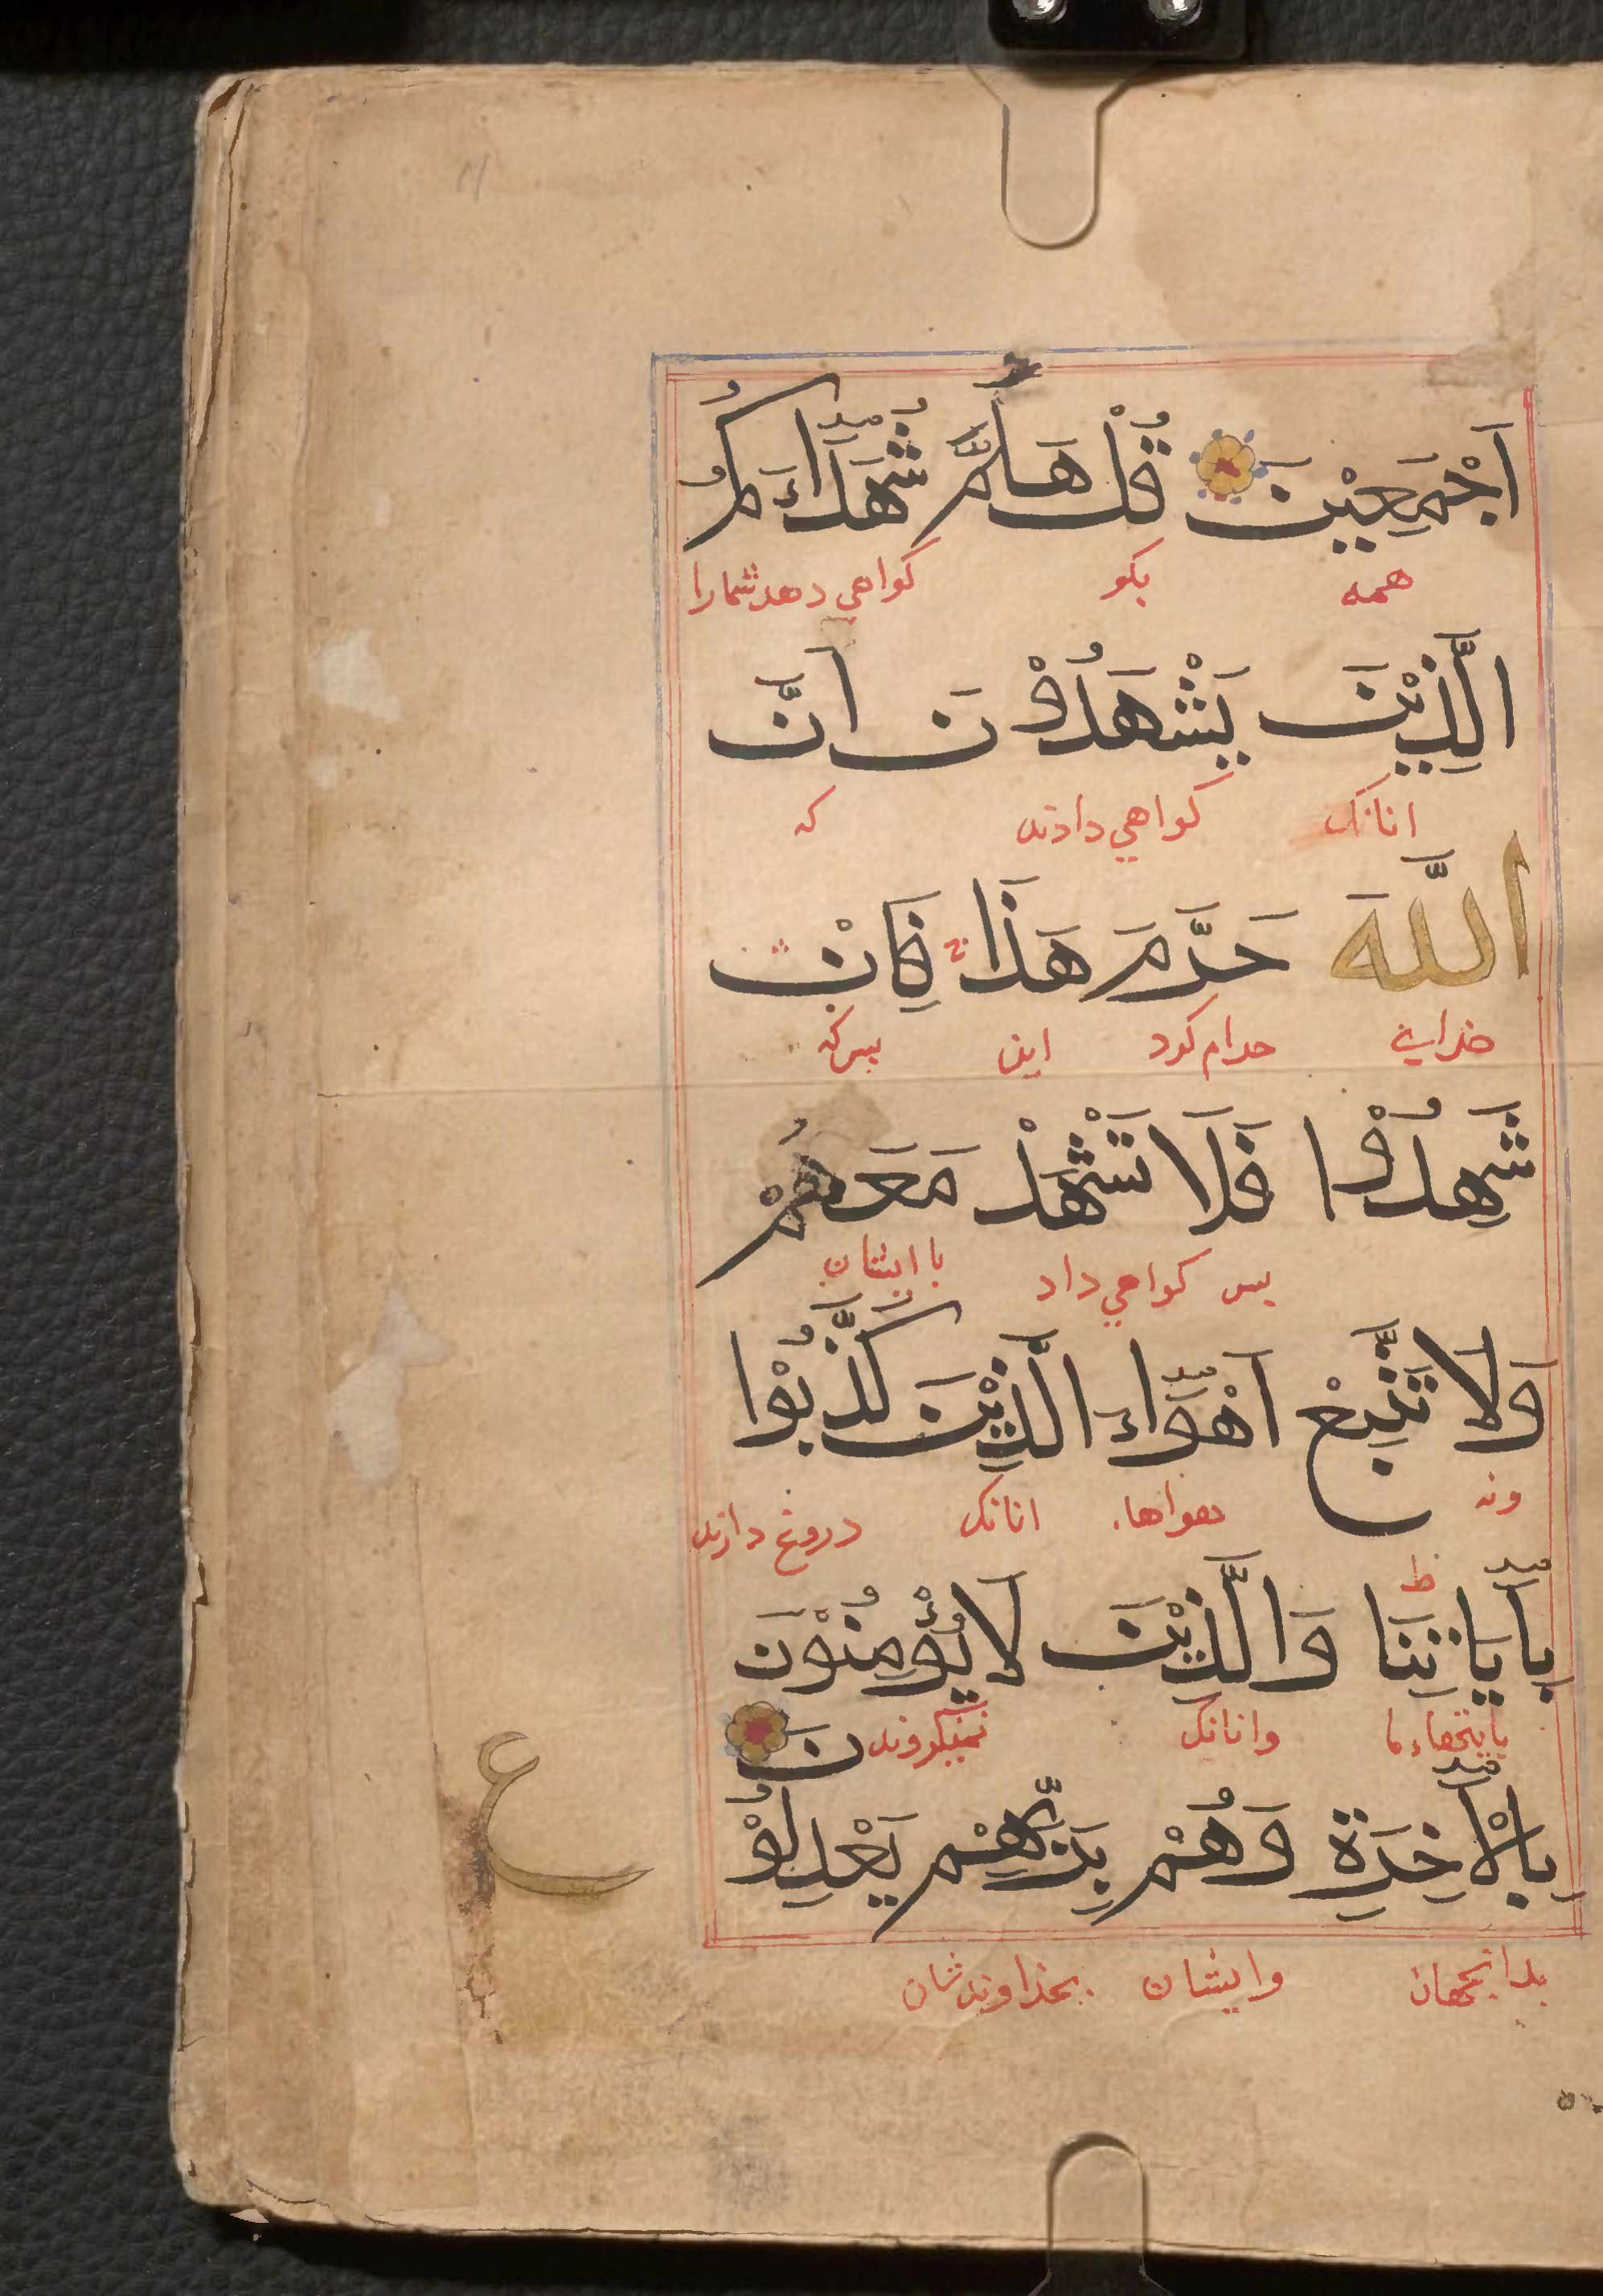 اَجْمَعِيْنَ قُلْ هَلُمَّ شُهَدَآءَكُمُ
همه بکو کواهی دهد شمارا
الَّذِيْنَ يَشْهَدُوْنَ اَنَّ
انانک کواهي دادند که
اللَّهَ حَرَّمَ هَذَا فَاِنْ
خدای حرام کرد این پس که
شَهِدُوْا فَلَا تَشْهَدْ مَعَهُمْ
پس کواهي داد با ایشان
وَلَا تَتَّبِعْ اَهْوَآءَ الَّذِيْنَ كَذَّبُوْا
ونه هواها انانک دروغ دارند
ط
بِاٰيَاتِنَا وَالَّذِيْنَ لَا يُؤْمِنُوْنَ
وانانک نمیکروند
بِالْاٰخِرَةِ وَهُمْ بِرَبِّهِمْ يَعْدِلُوْنَ
بدانجهان وایشان بخداوندشان
ع